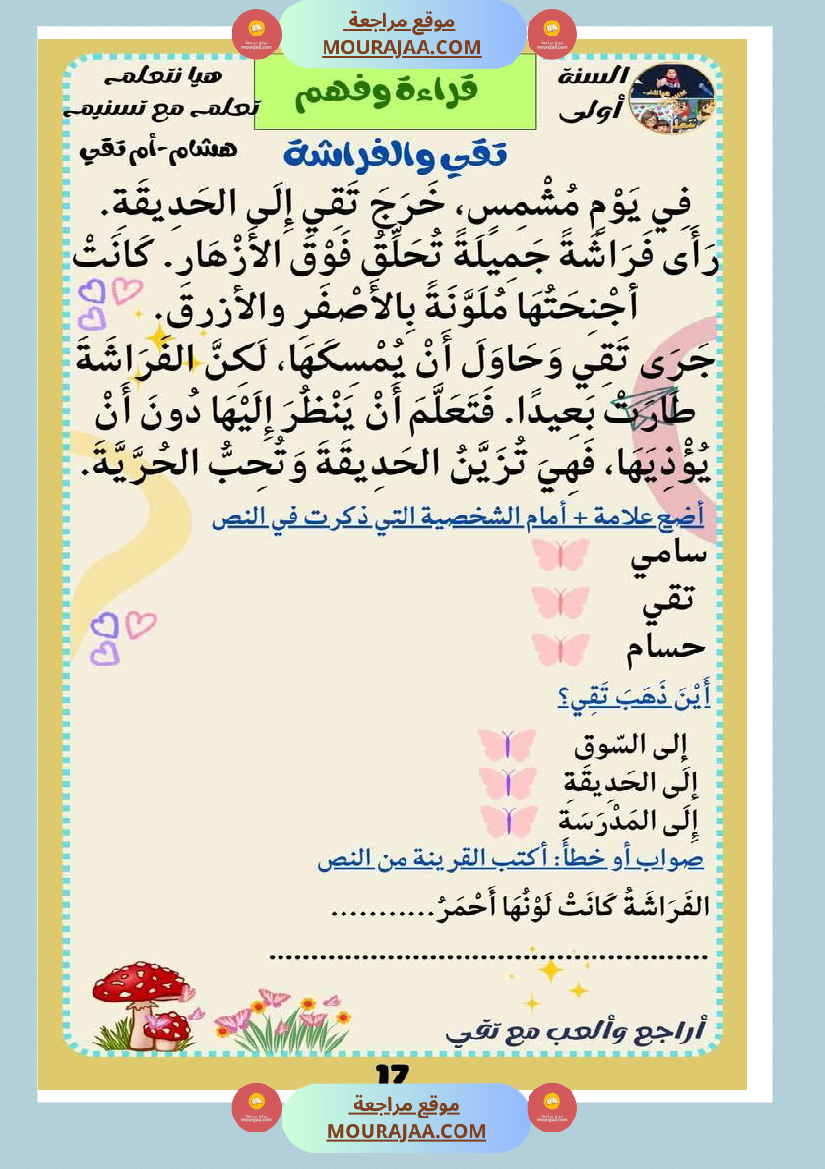 موقع مراجعة
MOURAJAA.COM
السنة
أولى
قراءة وفهم
هيا نتعلم
تعلم مع تسنيم
هشام-أم تقي
تقي والفراشة
فِي يَوْمٍ مُشْمِسٍ، خَرَجَ تَقِي إِلَى الحَدِيقَةِ.
رَأَى فَرَاشَةً جَمِيلَةً تُحَلِّقُ فَوْقَ الأَزْهَارِ. كَانَتْ
أَجْنِحَتُهَا مُلَوَّنَةً بِالأَصْفَرِ والأزرقَ.
جَرَى تَقِي وَحَاوَلَ أَنْ يُمْسِكَهَا، لَكِنَّ الفَرَاشَةَ
طَارَتْ بَعِيدًا. فَتَعَلَّمَ أَنْ يَنْظُرَ إِلَيْهَا دُونَ أَنْ
يُؤْذِيَهَا، فَهِيَ تُزَيَّنُ الحَدِيقَةَ وَتُحِبُّ الحُرَّيَّةَ.
أضع علامة + أمام الشخصية التي ذكرت في النص
سامي
تقي
حسام
أَيْنَ ذَهَبَ تَقِي؟
إلى السّوق
إلَى الحَدِيقَةِ
إِلَى المَدْرَسَة
صواب أو خطأ: أكتب القرينة من النص
الفَرَاشَةُ كَانَتْ لَوْنُهَا أَحْمَرُ...........
.....................................................
أراجع وألعب مع تقي
17
موقع مراجعة
MOURAJAA.COM